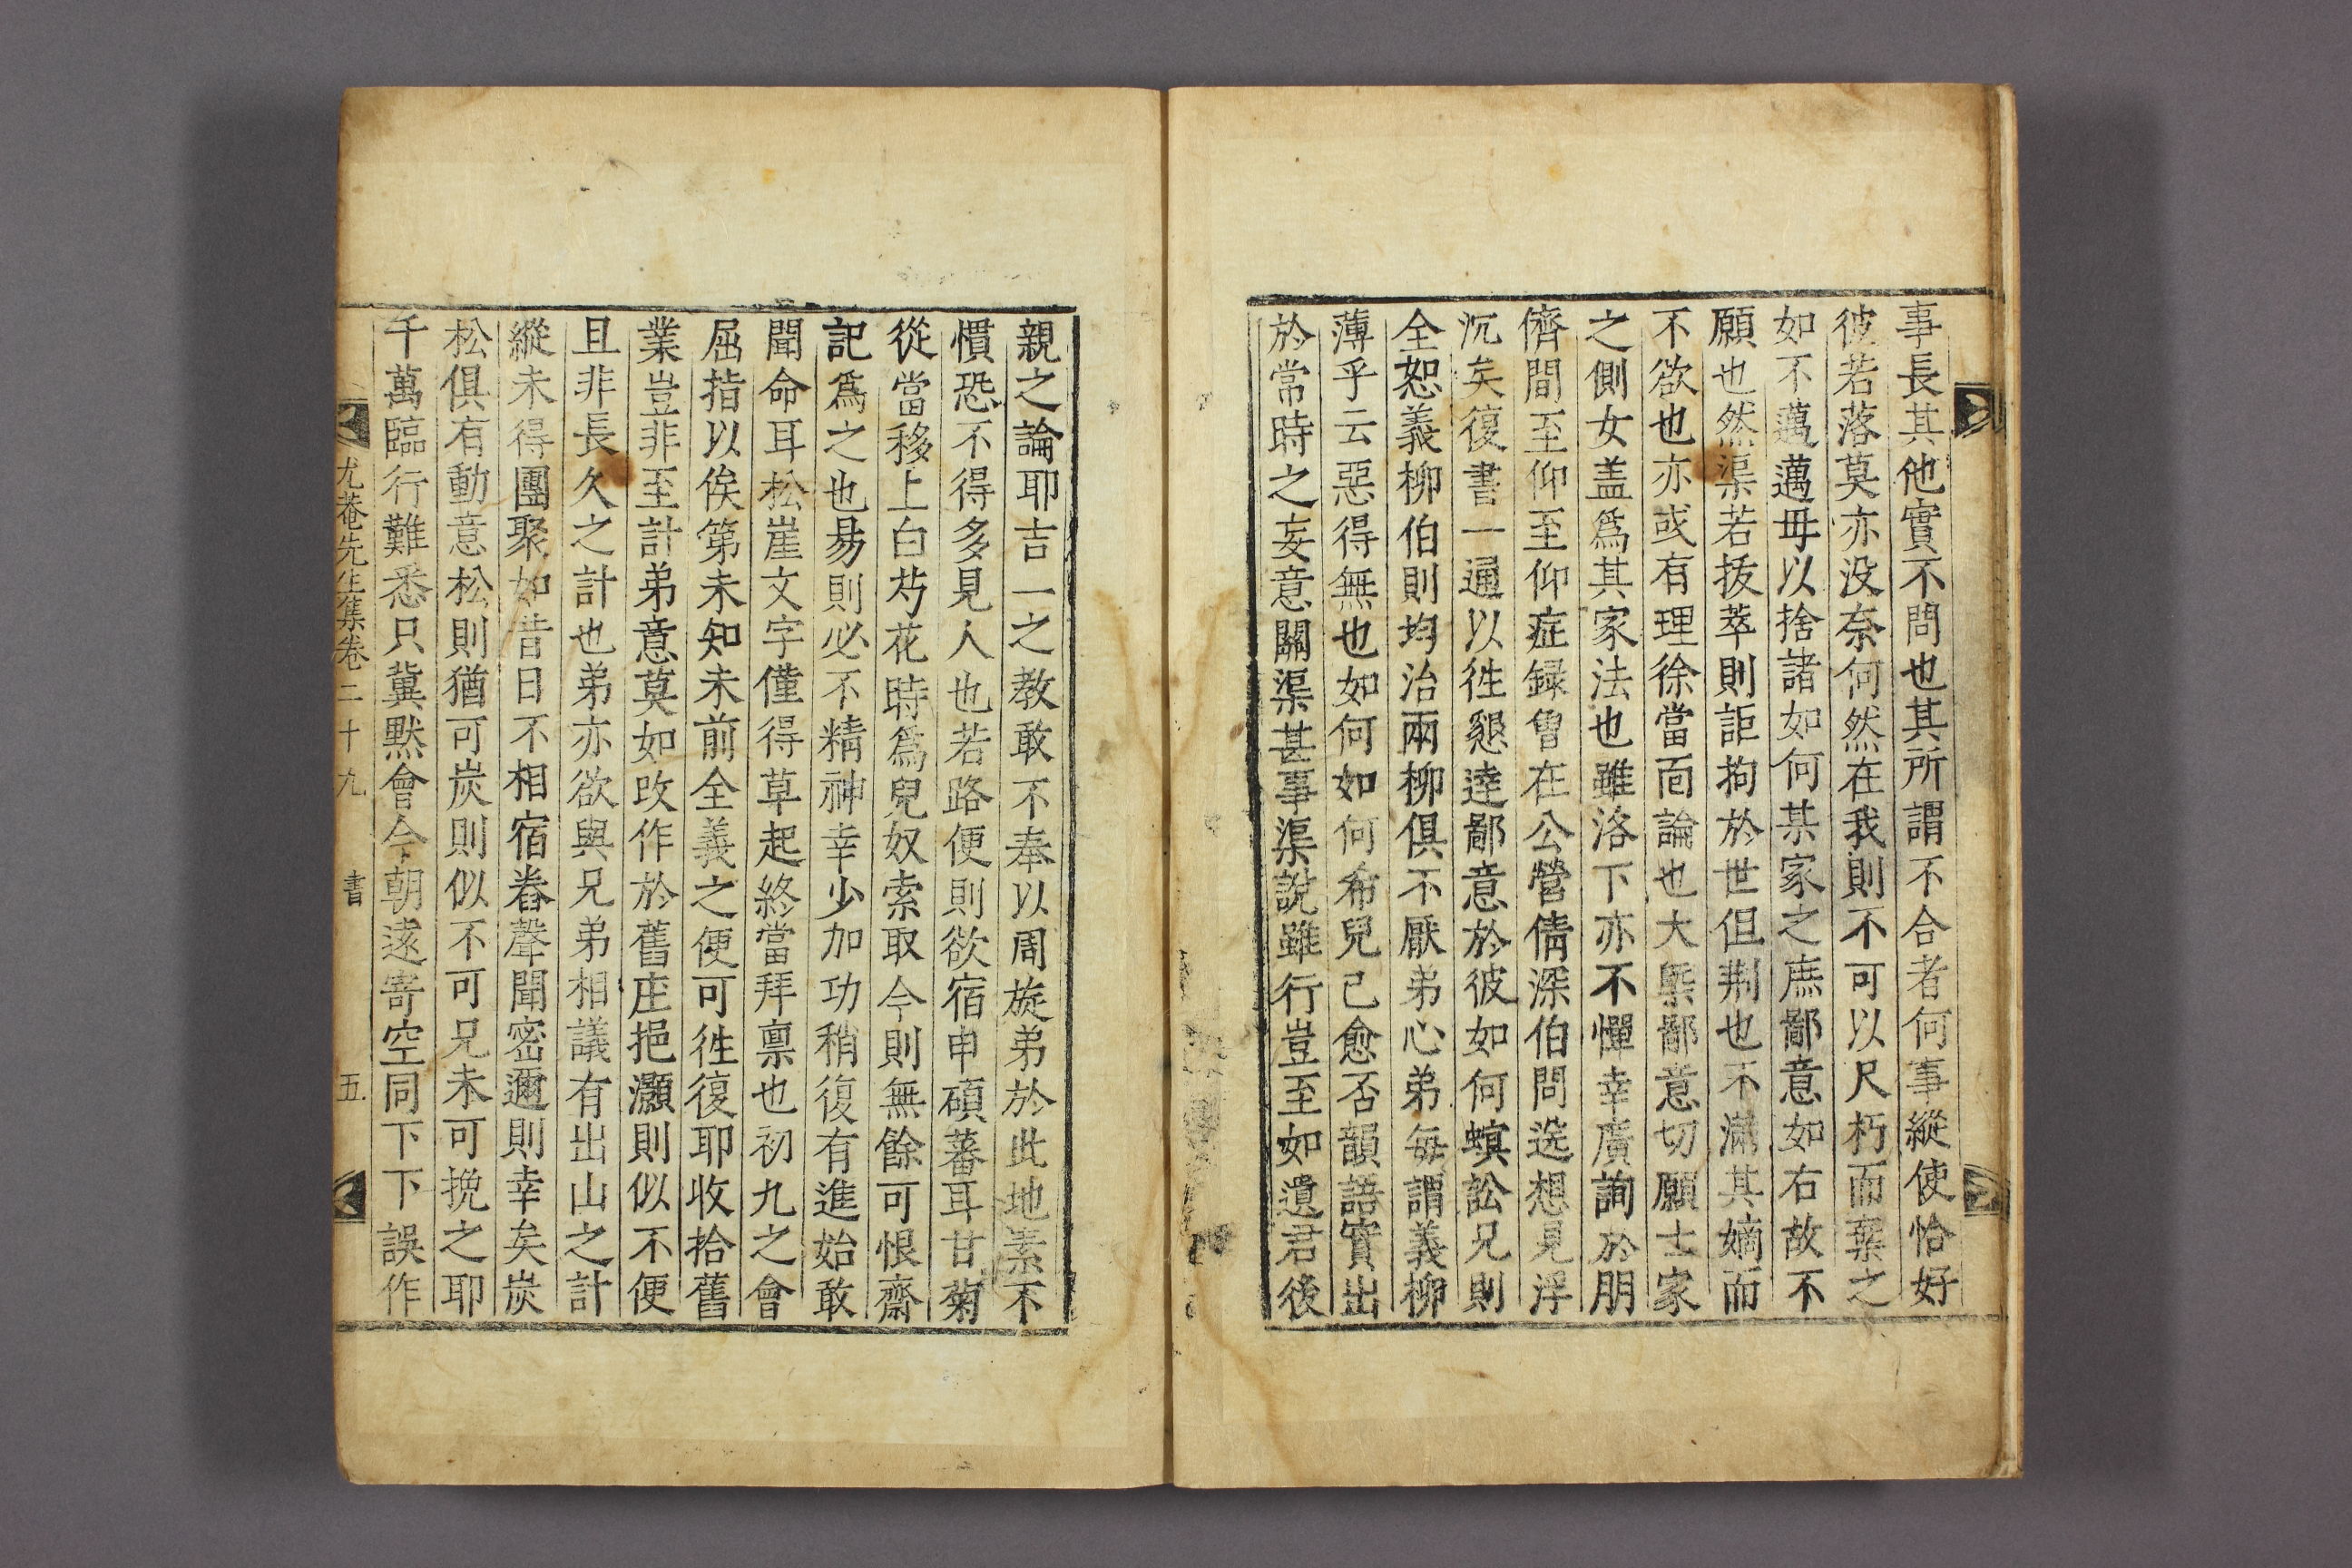 事長其他實不問也其所謂不合者何事縱使恰好
彼若落莫亦没奈何然在我則不可以尺朽而棄之
如不邁邁毋以捨諸如何某家之庶鄙意如右故不
願也然渠若拔萃則詎拘於世但荆也不滿其嫡而
不欲也亦或有理徐當面論也大槩鄙意切願士家
之側女盖爲其家法也雖洛下亦不憚幸廣詢於朋
儕間至仰至仰症録曾在公營倩深伯問选想見浮
沉矣復書一通以徃懇達鄙意於彼如何螟訟兄則
全恕義柳伯則均治兩柳俱不厭弟心弟每謂義柳
薄乎云惡得無也如何如何希兒已愈否韻語實出
於常時之妄意關渠甚事渠說雖行豈至如遺君後
親之論耶吉一之教敢不奉以周旋弟於此地素不
慣恐不得多見人也若路便則欲宿申碩蕃耳甘菊
從當移上白芍花時爲兒奴索取今則無餘可恨齋
記爲之也易則必不精神幸少加功稍復有進始敢
聞命耳松崖文字僅得草起終當拜禀也初九之會
屈指以俟第未知未前全義之便可徃復耶收拾舊
業豈非至計弟意莫如改作於舊庄挹灝則似不便
且非長久之計也弟亦欲與兄弟相議有出山之計
縱未得團聚如昔日不相宿舂聲聞密邇則幸矣炭
松俱有動意松則猶可炭則似不可兄未可挽之耶
千萬臨行難悉只冀默會今朝遠寄空同下下誤作
尤菴先生集卷二十九 書 五